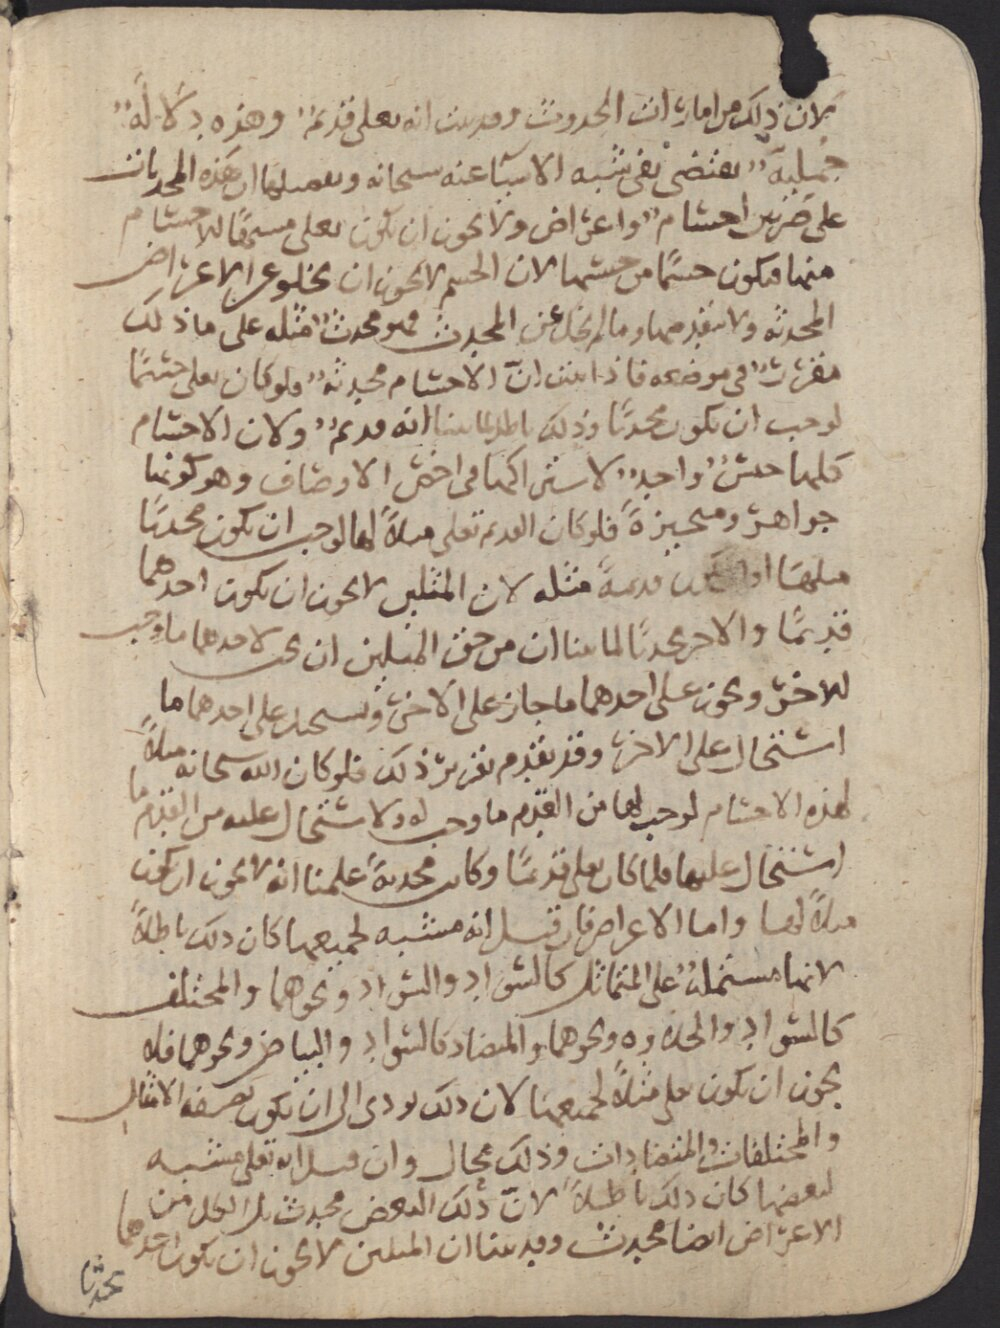 لان ذلك من امارات الحدوث وقد ثبت انه تعلى قديم وهذه دلالة
جملية تقتضي نفي شبه الاشيا عنه سبحانه وتفصيلها ان هذه المحدثات
على ضربين اجسام واعراض ولا يجوز ان يكون تعلى مشبها للاجسام
منها فيكون جسما من جنسها لان الجسم لا يجوز ان يخلو عن الاعراض
المحدثه ولا يتقدمها وما لم يخل عن المحدث فهو محدث مثله على ما ذلك
مقرر في موضعه فاذا ثبت ان الاجسام محدثة فلو كان تعلى جسما
لوجب ان يكون محدثا وذلك باطل لما بينا انه قديم ولان الاجسام
كلها جنس واحد لاشتراكها في اخص الاوصاف وهو كونها
جواهر ومتحيزة فلو كان القديم تعلى مثلا لها لوجب ان يكون محدثا
مثلها او تكون قديمة مثله لان المثلين لا يجوز ان يكون احدهما
قديما والاخر محدثا لما بينا ان من حق المثلين ان يجب لاحدهما ما وجب
للاخر ويجوز على احدهما ما جاز على الاخر ويستحيل على احدهما ما
استحال على الاخر وقد تقدم تقرير ذلك فلو كان الله سبحانه مثلا
لهذه الاجسام لوجب لها من القدم ما وجب له ولاستحال عليه من القدم ما
استحال عليها فلما كان تعلى قديما وكانت محدثة علمنا انه لا يجوز ان يكون
مثلا لها واما الاعراض فان قيل انه مشبه لجميعها كان ذلك باطلا
لانها مشتملة على المتماثل كالسواد والسواد ونحوهما والمختلف
كالسواد والحلاوه ونحوهما والمتضاد كالسواد والبياض ونحوهما فلا
يجوز ان يكون تعلى مثلا لجميعها لان ذلك يودي الى ان يكون بصفه الامثال
والمختلفات والمتضادات وذلك محال وان قيل انه تعلى مشبه
لبعضها كان ذلك باطلا لان ذلك البعض محدث بل الكل من
الاعراض ايضا محدث وقد بينا ان المثلين لا يجوز ان يكون احدهما
محدثا